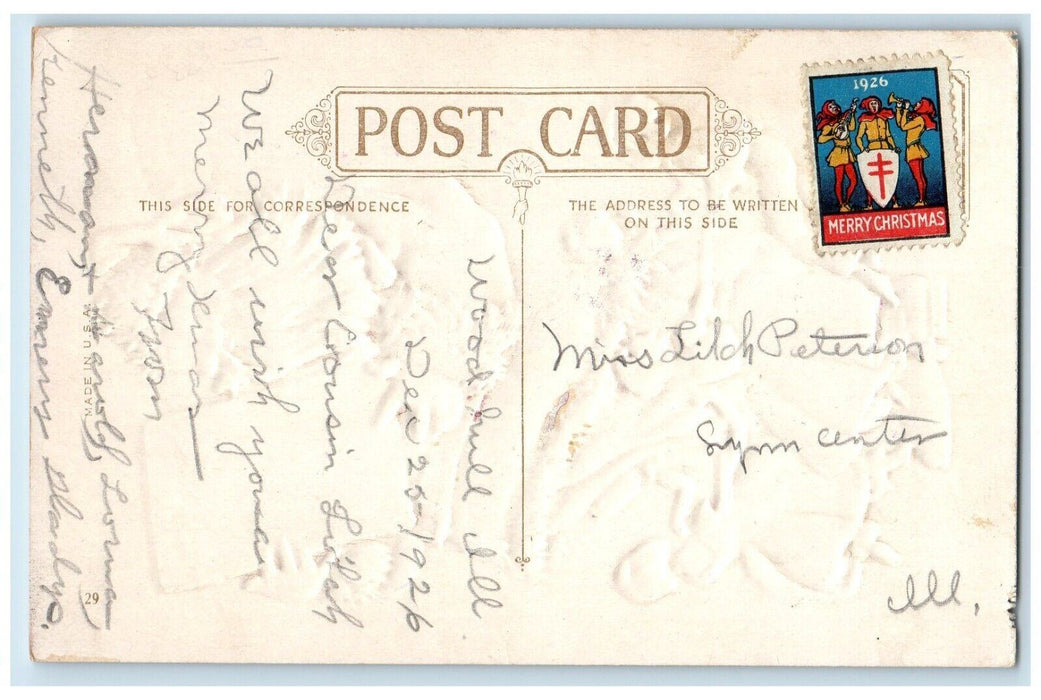 POST CARD
THIS SIDE FOR CORRESPONDENCE
THE ADDRESS TO BE WRITTEN
ON THIS SIDE
1926
MERRY CHRISTMAS
Woodhull Ill
Dec 25-1926
Dear Cousin Lilah
We all wish you a
Merry Xmas
From
Hermant Harold, Lorna
Kenneth, Emery Gladys.
MADE IN U.S.A.
29
Miss Lilah Peterson
Lynn Center
Ill,